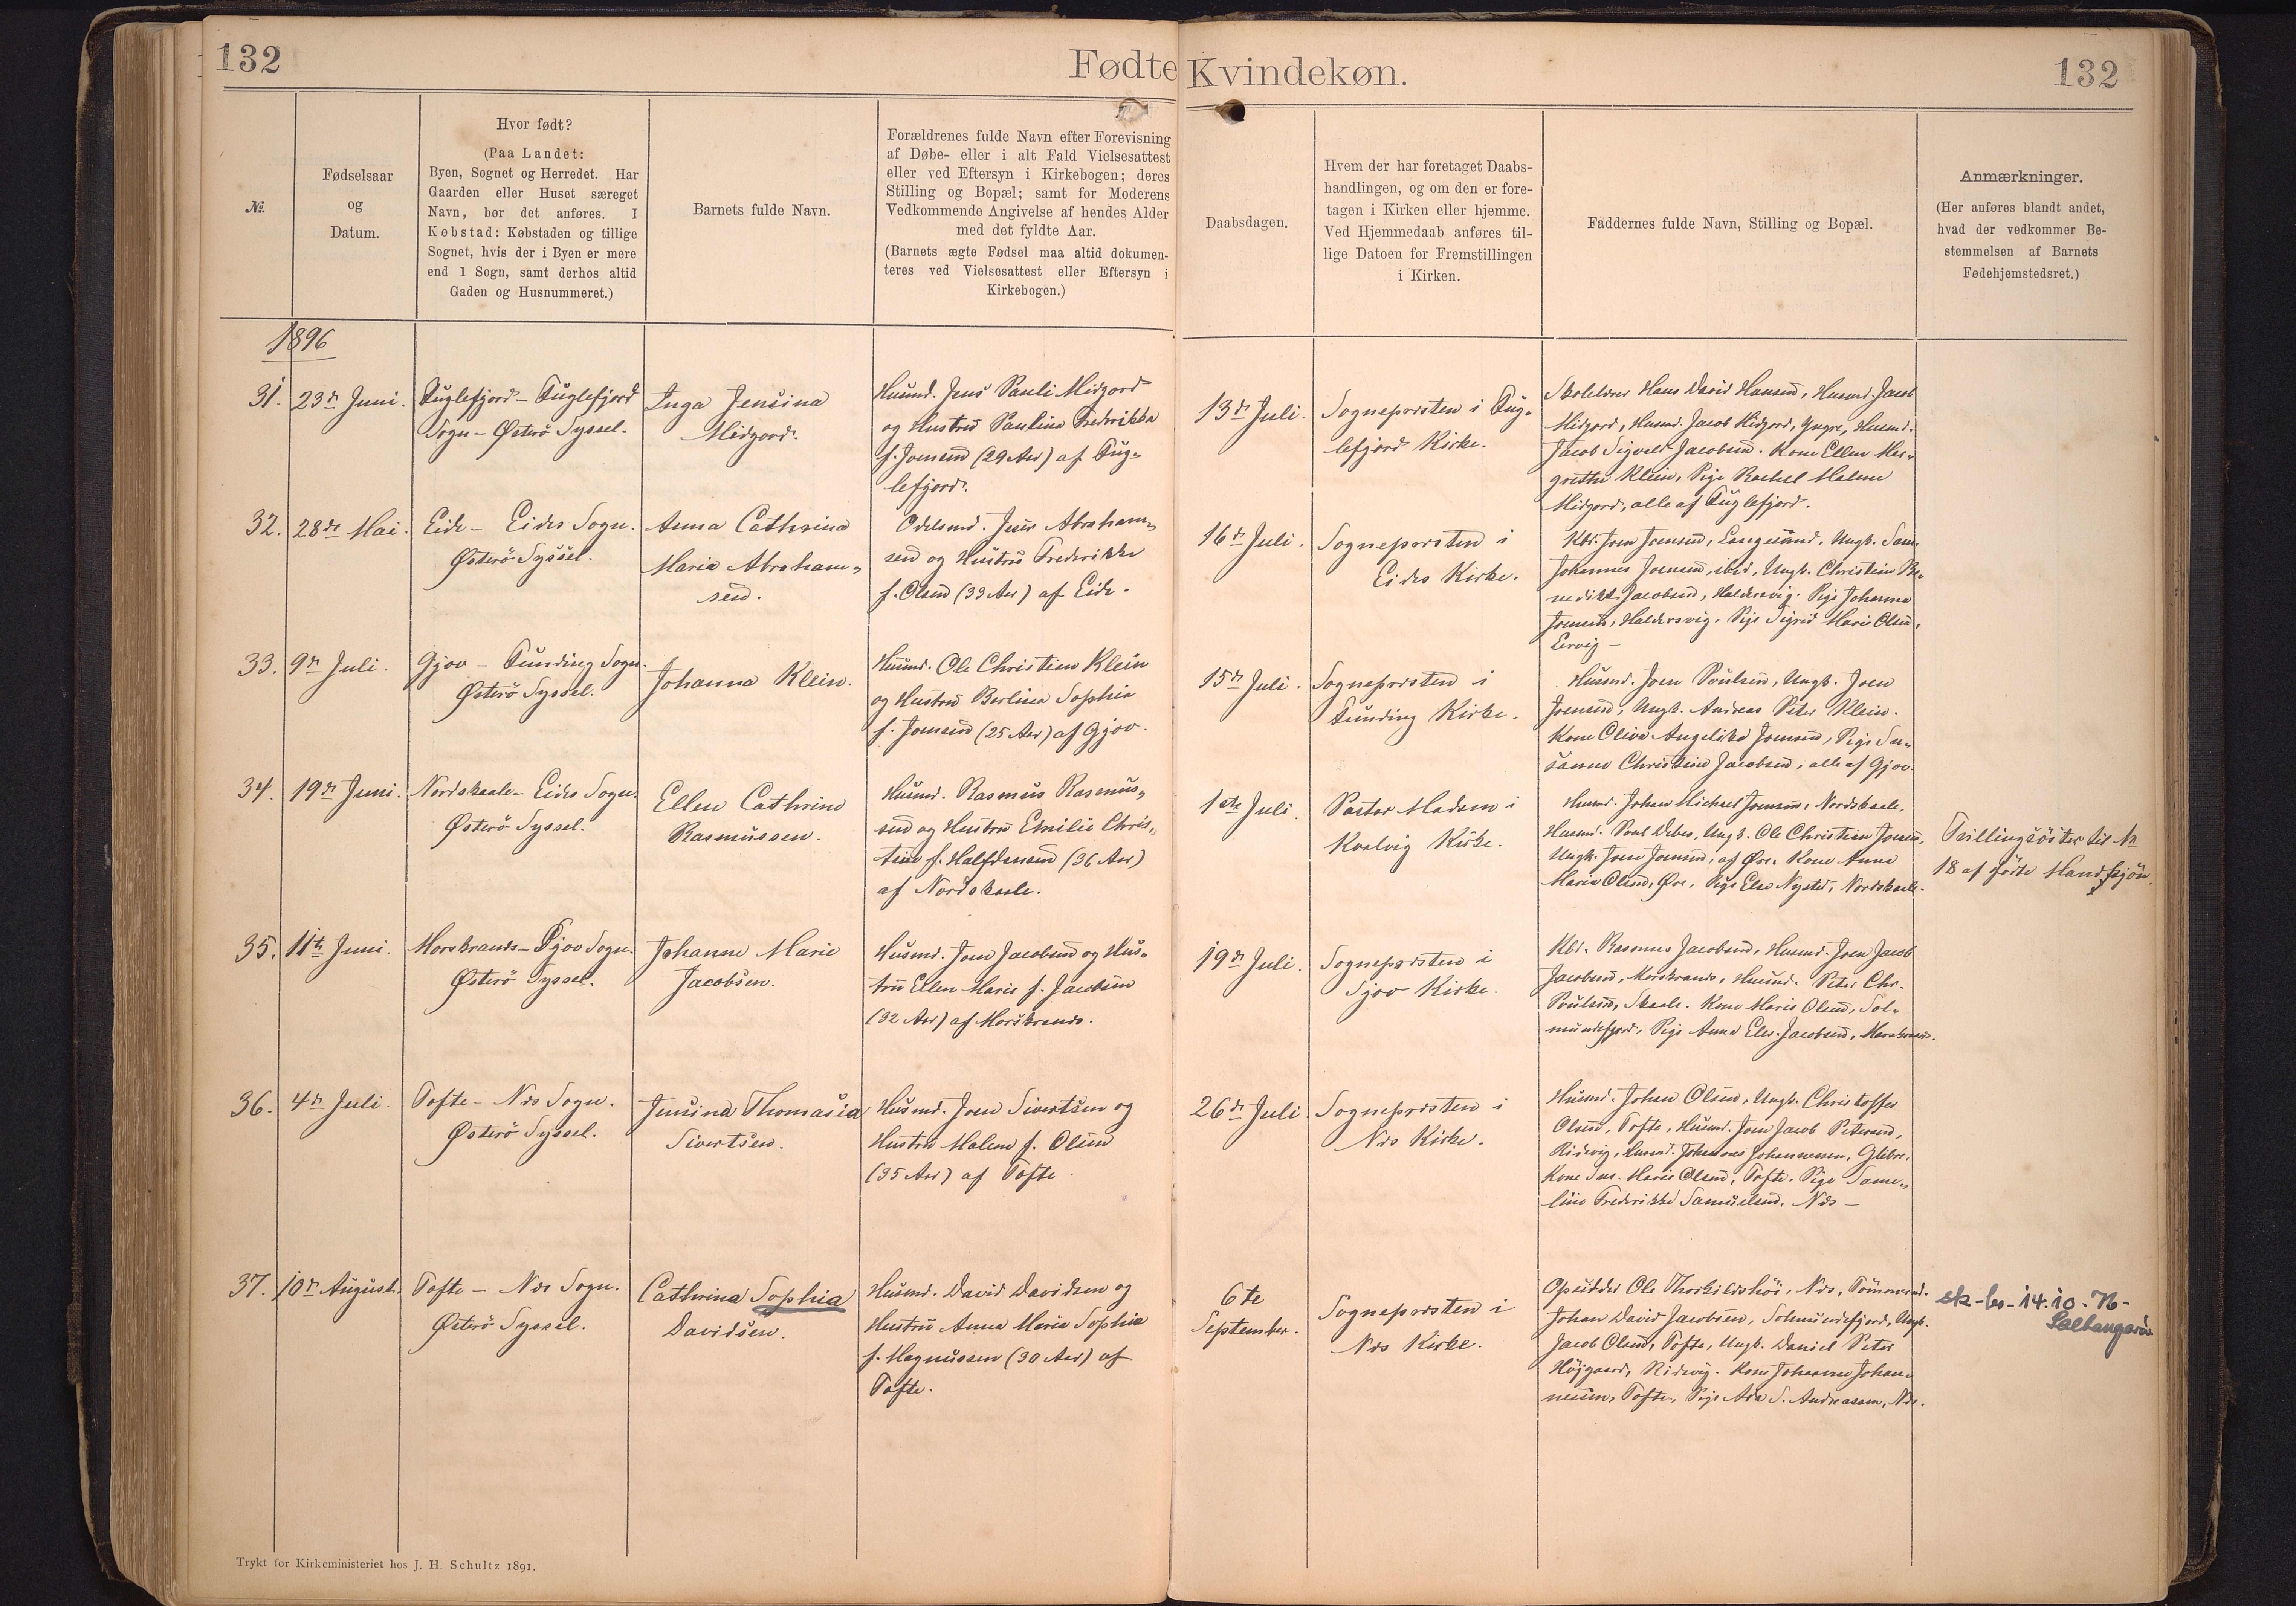 132
Fødte
Kvindekøn.
132
№.
Fødselsaar
og
Datum.
Hvor født?
(Paa Landet:
Byen, Sognet og Herredet. Har
Gaarden eller Huset særeget
Navn, bør det anføres. I
Købstad: Købstaden og tillige
Sognet, hvis der i Byen er mere
end 1 Sogn, samt derhos altid
Gaden og Husnummeret.)
Barnets fulde Navn.
Forældrenes fulde Navn efter Forevisning
af Døbe- eller i alt Fald Vielsesattest
eller ved Eftersyn i Kirkebogen; deres
Stilling og Bopæl; samt for Moderens
Vedkommende Angivelse af hendes Alder
med det fyldte Aar.
(Barnets ægte Fødsel maa altid dokumen-
teres ved Vielsesattest eller Eftersyn i
Kirkebogen.)
Daabsdagen.
Hvem der har foretaget Daabs-
handlingen, og om den er fore-
tagen i Kirken eller hjemme.
Ved Hjemmedaab anføres til-
lige Datoen for Fremstillingen
i Kirken.
Faddernes fulde Navn, Stilling og Bopæl.
Anmærkninger.
(Her anføres blandt andet,
hvad der vedkommer Be-
stemmelsen af Barnets
Fødehjemstedsret.)
1896
31.
23de Juni.
Fuglefjord - Fuglefjord
Sogn - Østerö Syssel.
Inga Jensina
Midgord.
Husmd. Jens Pauli Midgord
og Hustru Pauline Fredrikka
f. Joensen (29 Aar) af Fug-
lefjord.
13de Juli.
Sognepræsten i Fug-
lefjord Kirke.
Skolelærer Hans David Hansen, Husmd. Jacob
Midgord, Husmd. Jacob Midgord, yngre, Husmd.
Jacob Sigvald Jacobsen. Kone Ellen Mar-
grethe Klein, Pige Rachel Malene
Midgord, alle af Fuglefjord.
32.
28de Mai.
Eide - Eides Sogn.
Østerö Syssel.
Anna Cathrina
Maria Abraham-
sen.
Odelsmd. Jens Abraham-
sen og Hustru Frederikke
f. Olsen (33 Aar) af Eide.
16de Juli.
Sognepræsten i
Eides Kirke.
Kbd. Joen Joensen, Ungk.
Johannes Joensen, ibid, Ungk. Christian Be-
nedikt Jacobsen, Haldersvig. Pige Johanna
Joensen, Haldersvig. Pige Sigrid Marie Olsen,
Lervig -
33.
9de Juli.
Gjov - Funding Sogn.
Østerö Syssel.
Johanna Klein.
Husmd. Ole Christian Klein
og Hustru Berlina Sophia
f. Joensen (25 Aar) af Gjov.
15de Juli.
Sognepræsten i
Funding Kirke.
Husmd. Joen Poulsen, Ungk. Joen
Joensen, Ungk. Andreas Peter Klein.
Kone Oliva Angelika Joensen, Pige Su-
sanne Christine Jacobsen, alle af Gjov.
34.
19de Juni.
Nordskaale - Eides Sogn.
Østerö Syssel.
Ellen Cathrine
Rasmussen.
Husmd. Rasmus Rasmus-
sen og Hustru Emilie Chris-
tine f. Halfdansen (36 Aar)
af Nordskaale.
1ste Juli.
Pastor Madsen i
Kvalvig Kirke.
Husmd. Johan Michael Joensen, Nordskaale.
Husmd. Poul Debes, Ungk. Ole Christian Joensen,
Ungk. Joen Joensen, af Øre. Kone Anna
Maria Olsen, Øre, Pige Else Nysted, Nordskaale.
Tvillingsöster til №
18 af fødte Mandkjön.
35.
11te Juni.
Morskranes - Sjov Sogn.
Østerö Syssel.
Johanne Marie
Jacobsen.
Husmd. Joen Jacobsen og Hus-
tru Ellen Marie f. Jacobsen
(32 Aar) af Morskranes.
19de Juli.
Sognepræsten i
Sjov Kirke.
Kbd. Rasmus Jacobsen, Husmd. Joen Jacob
Jacobsen, Morskranes, Husmd. Peter Chr.
Poulsen, Skaale. Kone Marie Olsen, Sol-
mundefjord, Pige Anna Elis. Jacobsen, Morskranes.
36.
4de Juli.
Tofte - Næs Sogn.
Østerö Syssel.
Jensina Thomasia
Sivertsen.
Husmd. Joen Sivertsen og
Hustru Malene f. Olsen
(35 Aar) af Tofte
26de Juli
Sognepræsten i
Næs Kirke.
Husmd. Johan Olsen, Ungk. Christoffer
Olsen, Tofte, Husmd. Joen Jacob Petersen,
Ridevig, Husmd. Johannes Johannesen, Glibre.
Kone Sus. Marie Olsen, Tofte. Pige Same-
line Frederikke Samuelsen, Næs -
37.
10de August.
Tofte - Næs Sogn.
Østerö Syssel.
Cathrina Sophia
Davidsen.
Husmd. David Davidsen og
Hustru Anna Maria Sophia
f. Magnussen (30 Aar) af
Tofte.
6te
September.
Sognepræsten i
Næs Kirke.
Opsidder Ole Thorkildshöi, Næs, Tömmermd.
Johan David Jacobsen, Solmundefjord, Ungk.
Jacob Olsen, Tofte, Ungk. Daniel Peter
Höjgaard, Ridevig. Kone Johanne Johan-
nesen, Tofte, Pige Ada S. Andreassen, Næs.
sk-bs-14.10-76-
Saltangará
Trykt for Kirkeministeriet hos J. H. Schultz 1891.